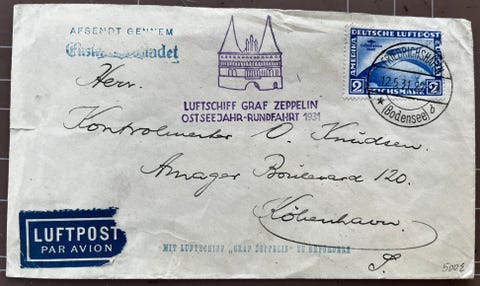 AFSENDT GENNEM
LUFTSCHIFF GRAF ZEPPELIN
OSTSEEJAHR-RUNDFAHRT 1931
DEUTSCHE LUFTPOST
AMERIKA
2 REICHSMARK 2
FRIEDRICHSHAFEN
12.5.31
★ (Bodensee) d
Herr.
Kontrolmester O. Knudsen.
Amager Boulevard 120.
København.
S.
LUFTPOST
PAR AVION
MIT LUFTSCHIFF „GRAF ZEPPELIN" ZU BEFÖRDERN
500€